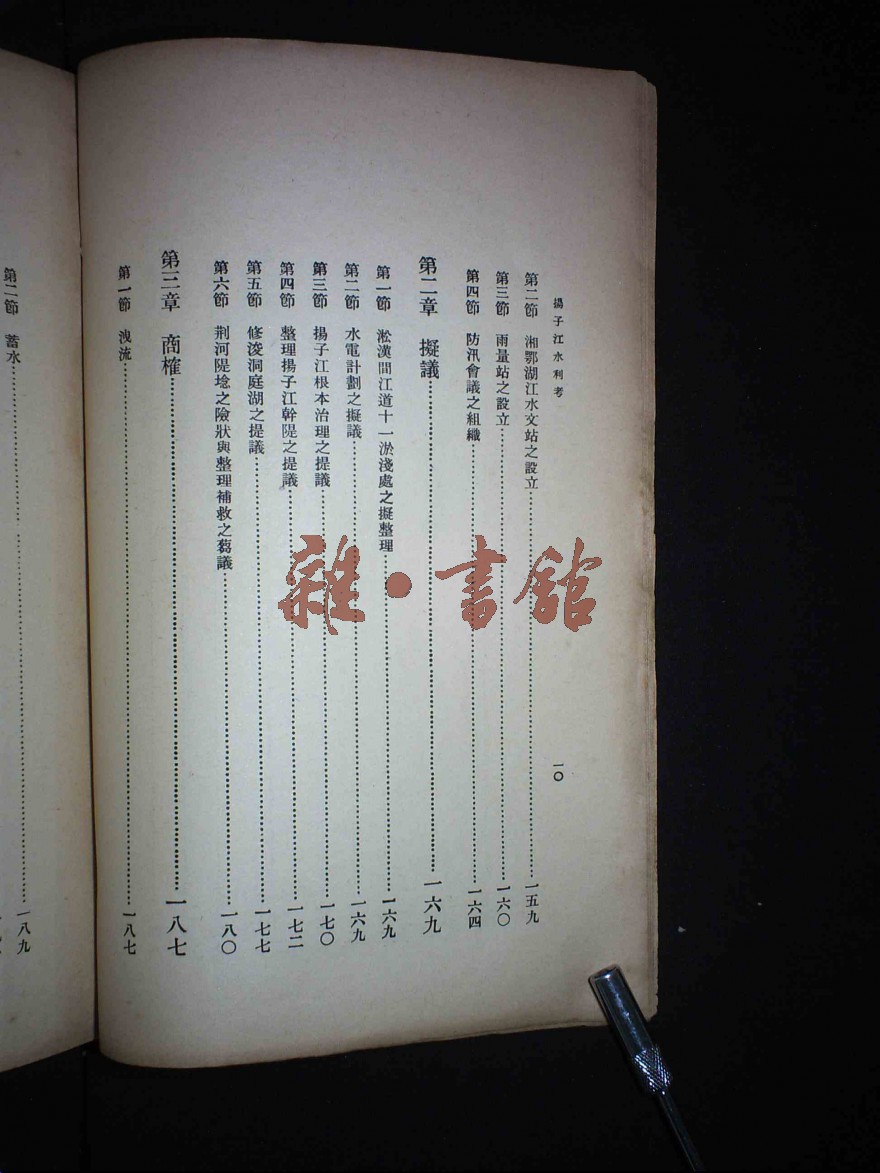 揚子江水利考
一〇
第二節 湘鄂湖江水文站之設立……一五九
第三節 雨量站之設立……一六〇
第四節 防汛會議之組織……一六四
第二章 擬議……一六九
第一節 淞漢間江道十一淤淺處之擬整理……一六九
第二節 水電計劃之擬議……一六九
第三節 揚子江根本治理之提議……一七〇
第四節 整理揚子江幹隄之提議……一七二
第五節 修浚洞庭湖之提議……一七七
第六節 荆河隄埝之險狀與整理補救之芻議……一八〇
第三章 商榷……一八七
第一節 洩流……一八七
第二節 蓄水……一八九
雜·書館